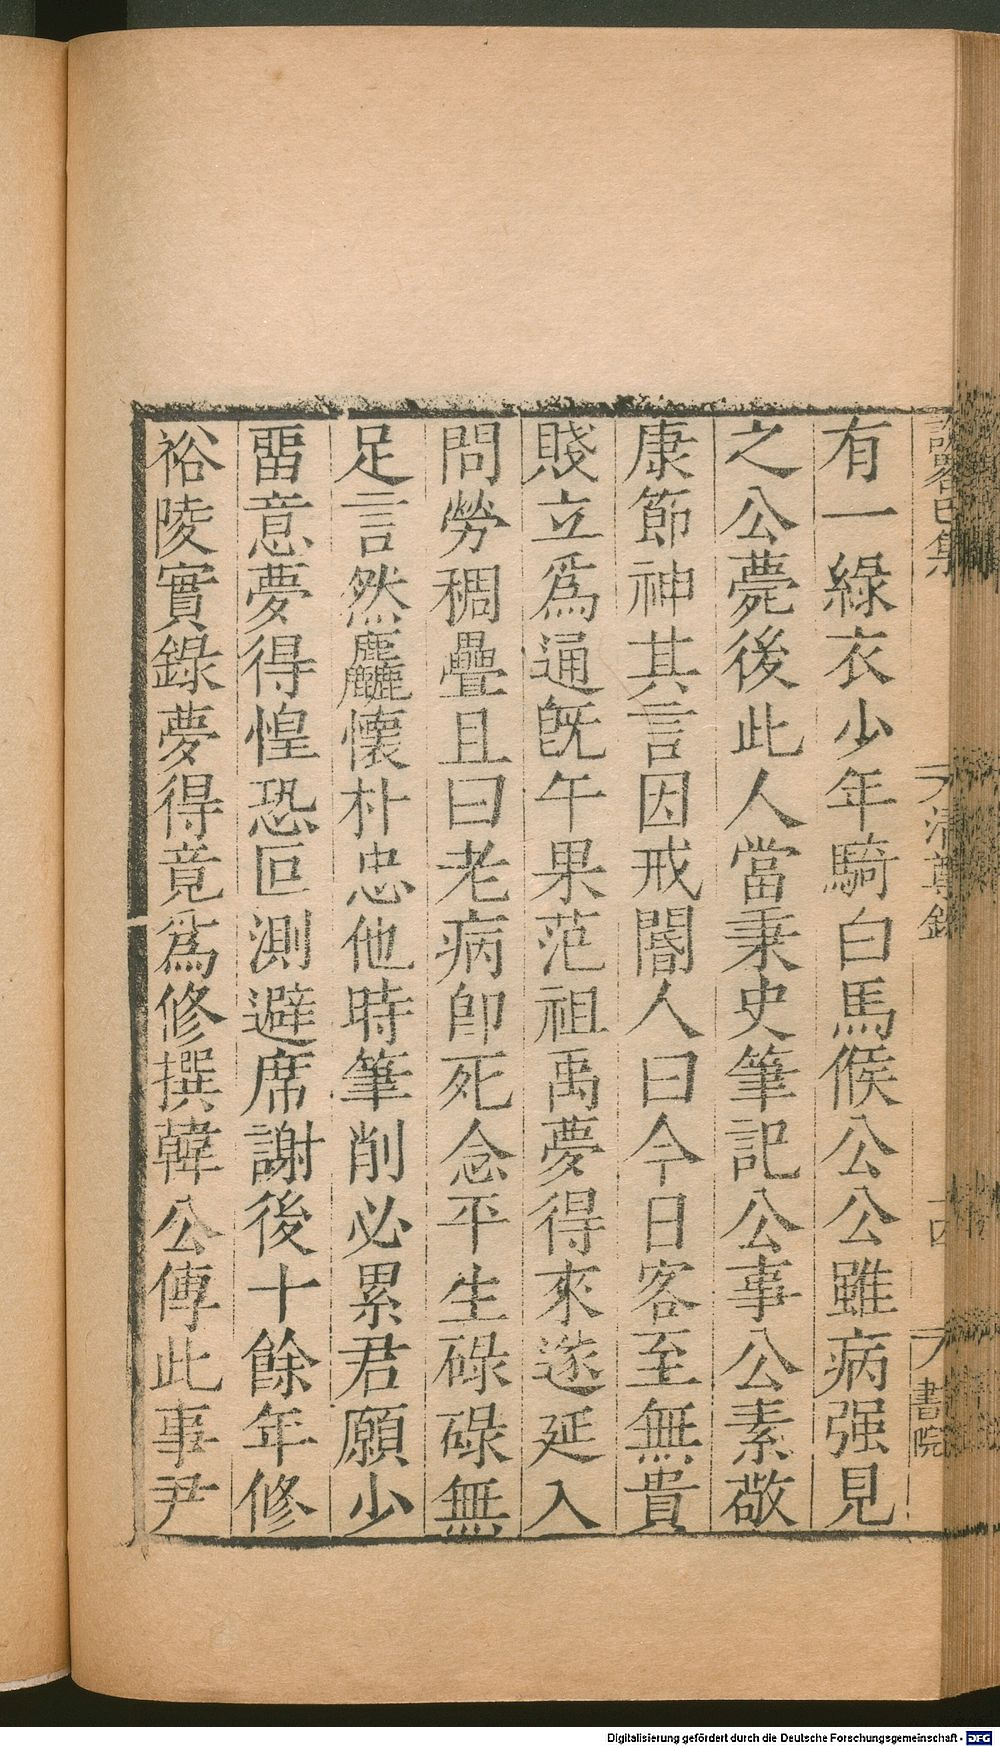 有一綠衣少年騎白馬候公公雖病强見
之公薨後此人當秉史筆記公事公素敬
康節神其言因戒閽人曰今日客至無貴
賤立爲通旣午果范祖禹夢得來遂延入
問勞稠疊且曰老病卽死念平生碌碌無
足言然麤懷朴忠他時筆削必累君願少
畱意夢得惶恐叵測避席謝後十餘年修
裕陵實錄夢得竟爲修撰韓公傳此事尹
清尊錄
十四
書院
Digitalisierung gefördert durch die Deutsche Forschungsgemeinschaft - DFG